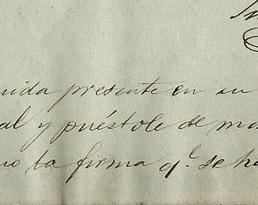 uida presente en su
al y puéstole de ma
no la firma q.e se ha